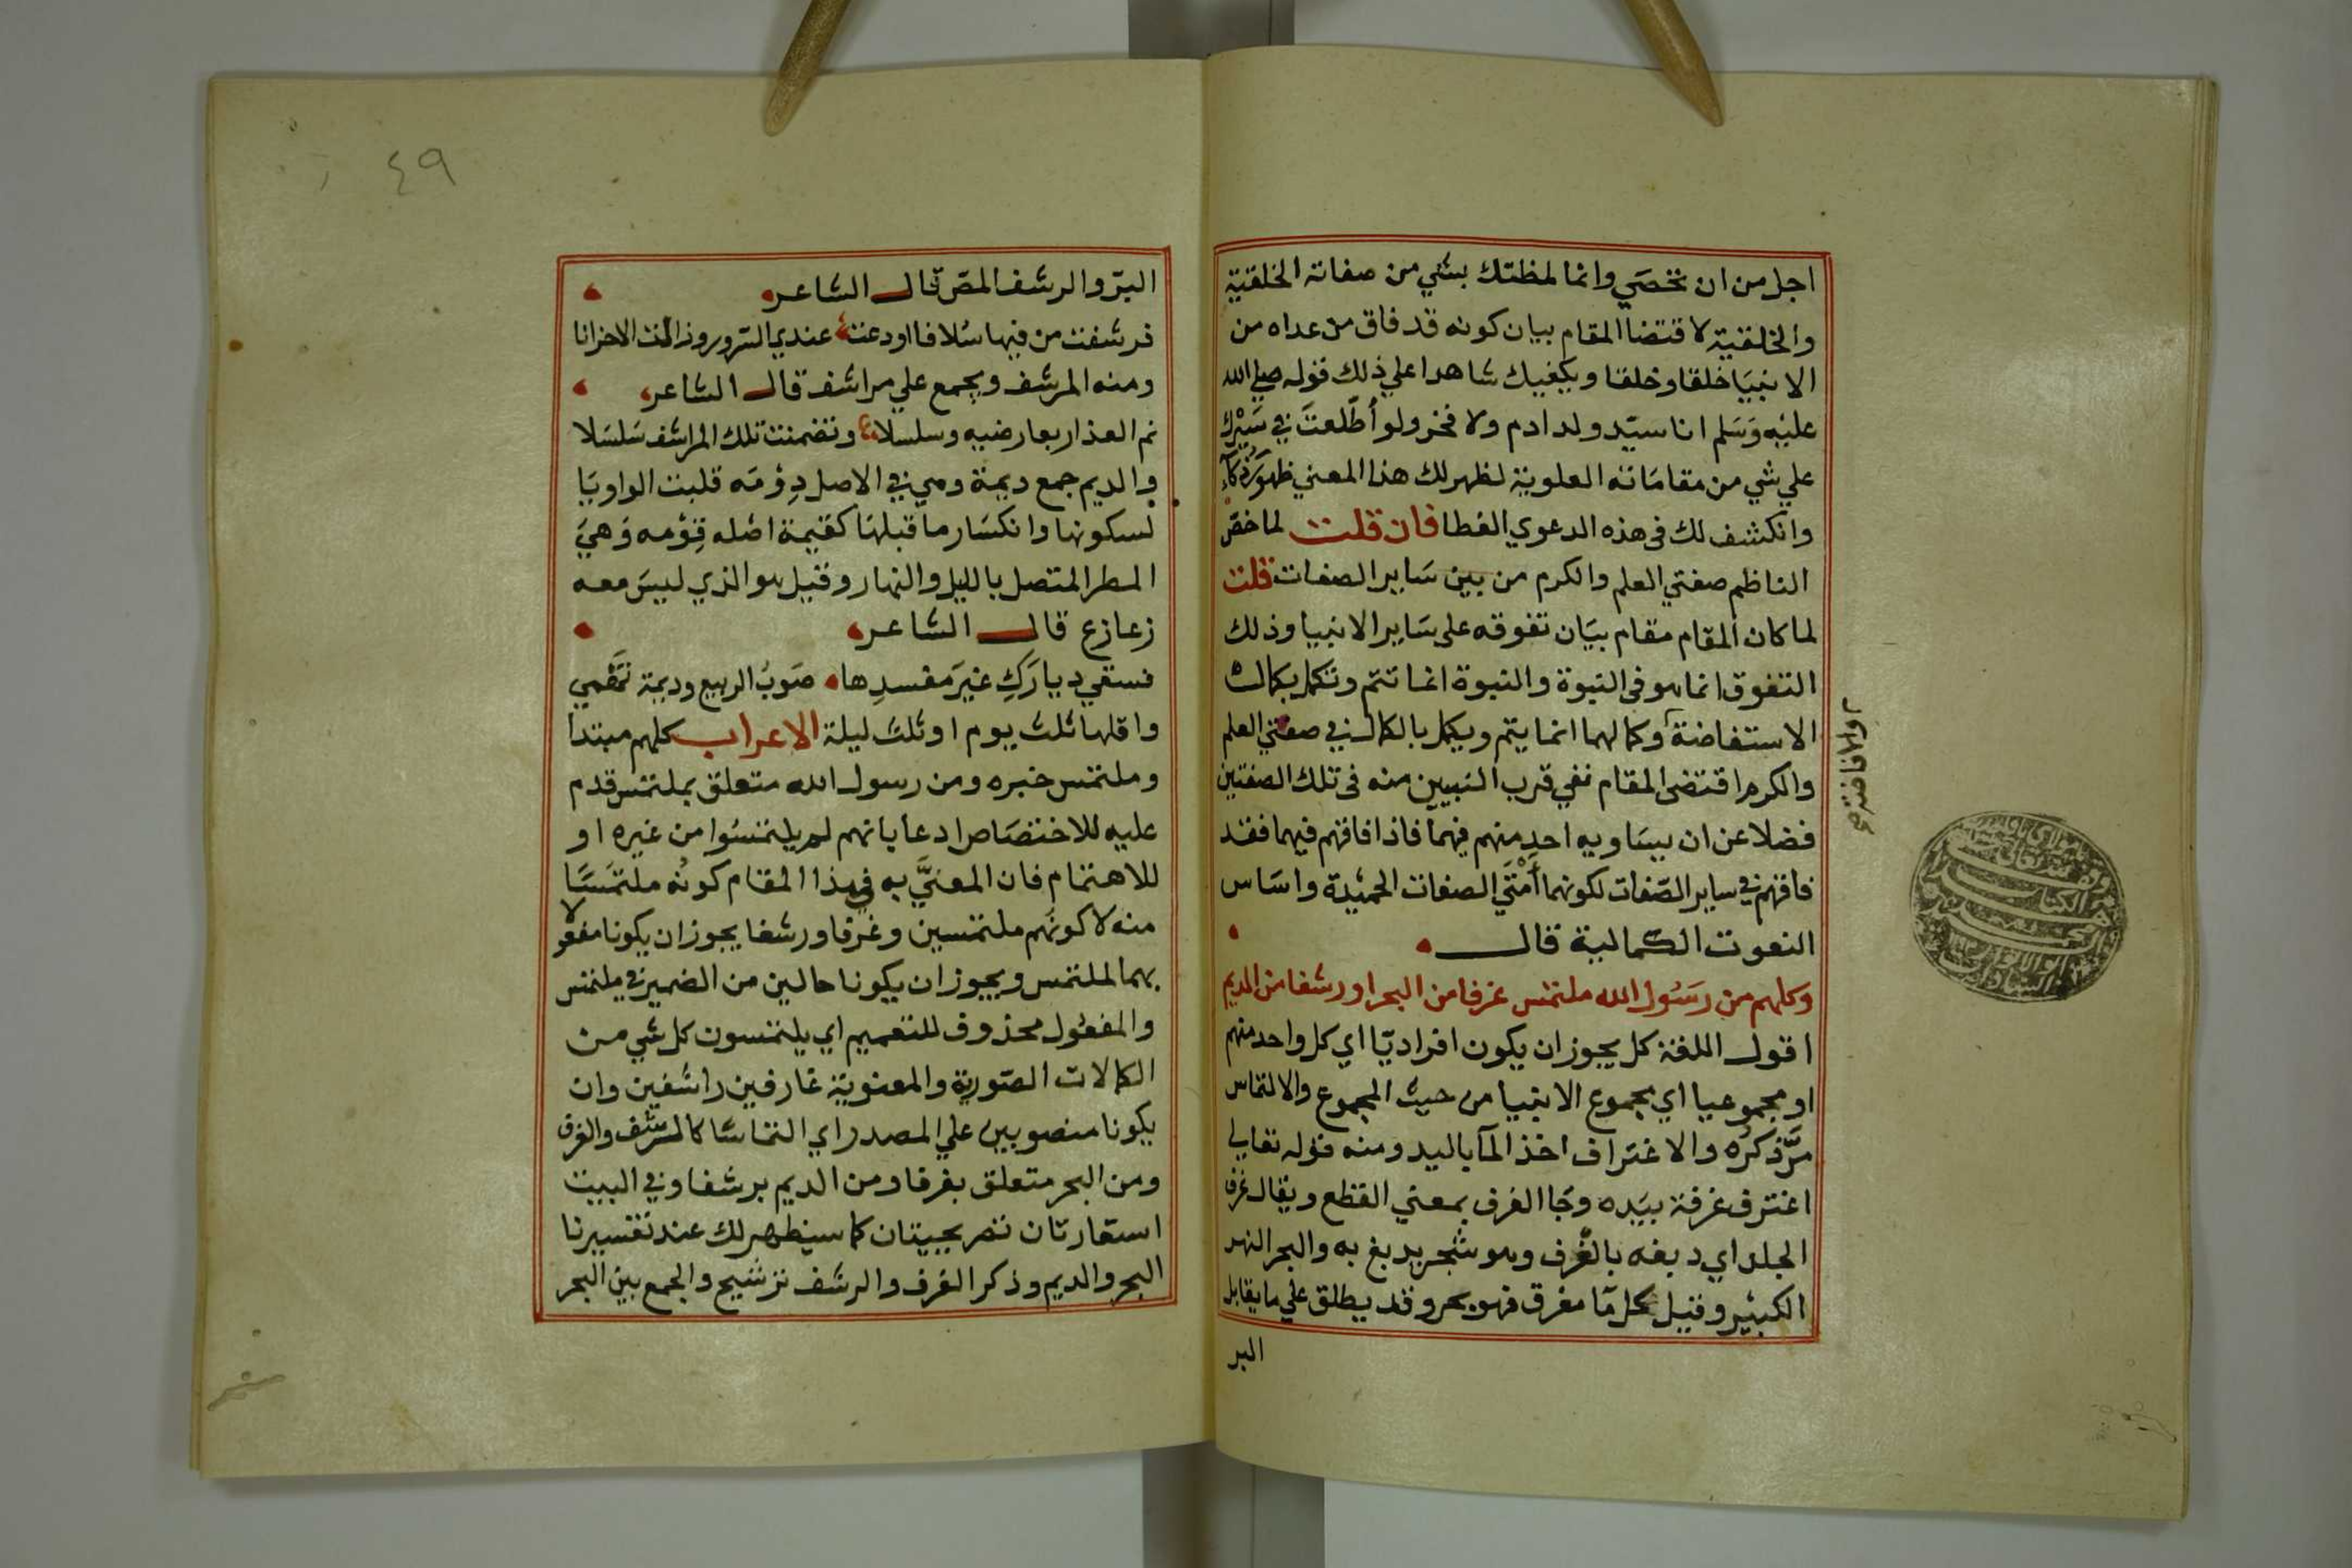 اجل من ان تحصي وانما لمظتك بشي من صفاته الخلقية
والخلقية لاقتضا المقام بيان كونه قد فاق من عداه من
الانبيا خلقا وخلقا ويكفيك شاهدا علي ذلك قوله صلي الله
عليه وسلم انا سيد ولد ادم ولا فخر ولو أطلعت في سيرك
علي شي من مقاماته العلوية لظهر لك هذا المعني ظهور ذكاء
وانكشف لك في هذه الدعوي الغطا فان قلت لما خص
الناظم صفتي العلم والكرم من بين ساير الصفات قلت
لما كان المقام مقام بيان تفوقه على ساير الانبيا وذلك
التفوق انما هو في النبوة والنبوة انما تتم وتكمل بكمال
الاستفاضة وكمالهما انما يتم ويكمل بالكمال في صفتي العلم
والافاضة صح
والكرم اقتضى المقام نفي قرب النبيين منه في تلك الصفتين
فضلا عن ان يساويه احد منهم فيهما فاذا فاقهم فيهما فقد
فاقهم في ساير الصفات لكونهما أمتي الصفات الحميدة واساس
النعوت الكمالية قال
وكلهم من رسول الله ملتمس غرفا من البحر او رشفا من الديم
اقول اللغة كل يجوز ان يكون افراديا اي كل واحد منهم
او مجموعيا اي مجموع الانبيا من حيث المجموع والالتماس
مرّ ذكره والاغتراف اخذ المآ باليد ومنه قوله تعالي
اغترف غرفة بيده وجا الغرف بمعني القطع ويقال غرف
الجلد اي دبغه بالغرف وهو شجر يدبغ به والبحر النهر
الكبير وقيل كل مآ مغرق فهو بحر وقد يطلق علي ما يقابل
البر
٤٩
البرّ والرشف المصّ قال الشاعر
فرشفت من فيها سلافا اودعت عندي السرور وذالت الاحزانا
ومنه المرشف ويجمع علي مراشف قال الشاعر
نم العذار بعارضيه وسلسلا وتضمنت تلك المراشف سلسلا
والديم جمع ديمة وهي في الاصل دومه قلبت الواو يا
لسكونها وانكسار ما قبلها كقيمة اصله قومه وهي
المطر المتصل بالليل والنهار وقيل هو الذي ليس معه
زعازع قال الشاعر
فسقي ديارك غير مفسدها صوب الربيع وديمة تهمي
واقلها ثلث يوم او ثلث ليلة الاعراب كلهم مبتدا
وملتمس خبره ومن رسول الله متعلق بملتمس قدم
عليه للاختصاص ادعا بانهم لم يلتمسوا من غيره او
للاهتمام فان المعنيّ به في هذا المقام كونه ملتمسا
منه لا كونهم ملتمسين وغرفا ورشفا يجوز ان يكونا مفعولا
بهما لملتمس ويجوز ان يكونا حالين من الضمير في ملتمس
والمفعول محذوف للتعميم اي يلتمسون كل شي من
الكمالات الصورية والمعنوية غارفين راشفين وان
يكونا منصوبين علي المصدر اي التماسا كالرشف والغرف
ومن البحر متعلق بغرفا ومن الديم برشفا وفي البيت
استعارتان تصريحيتان كما سيظهر لك عند تفسيرنا
البحر والديم وذكر الغرف والرشف ترشيح والجمع بين البحر